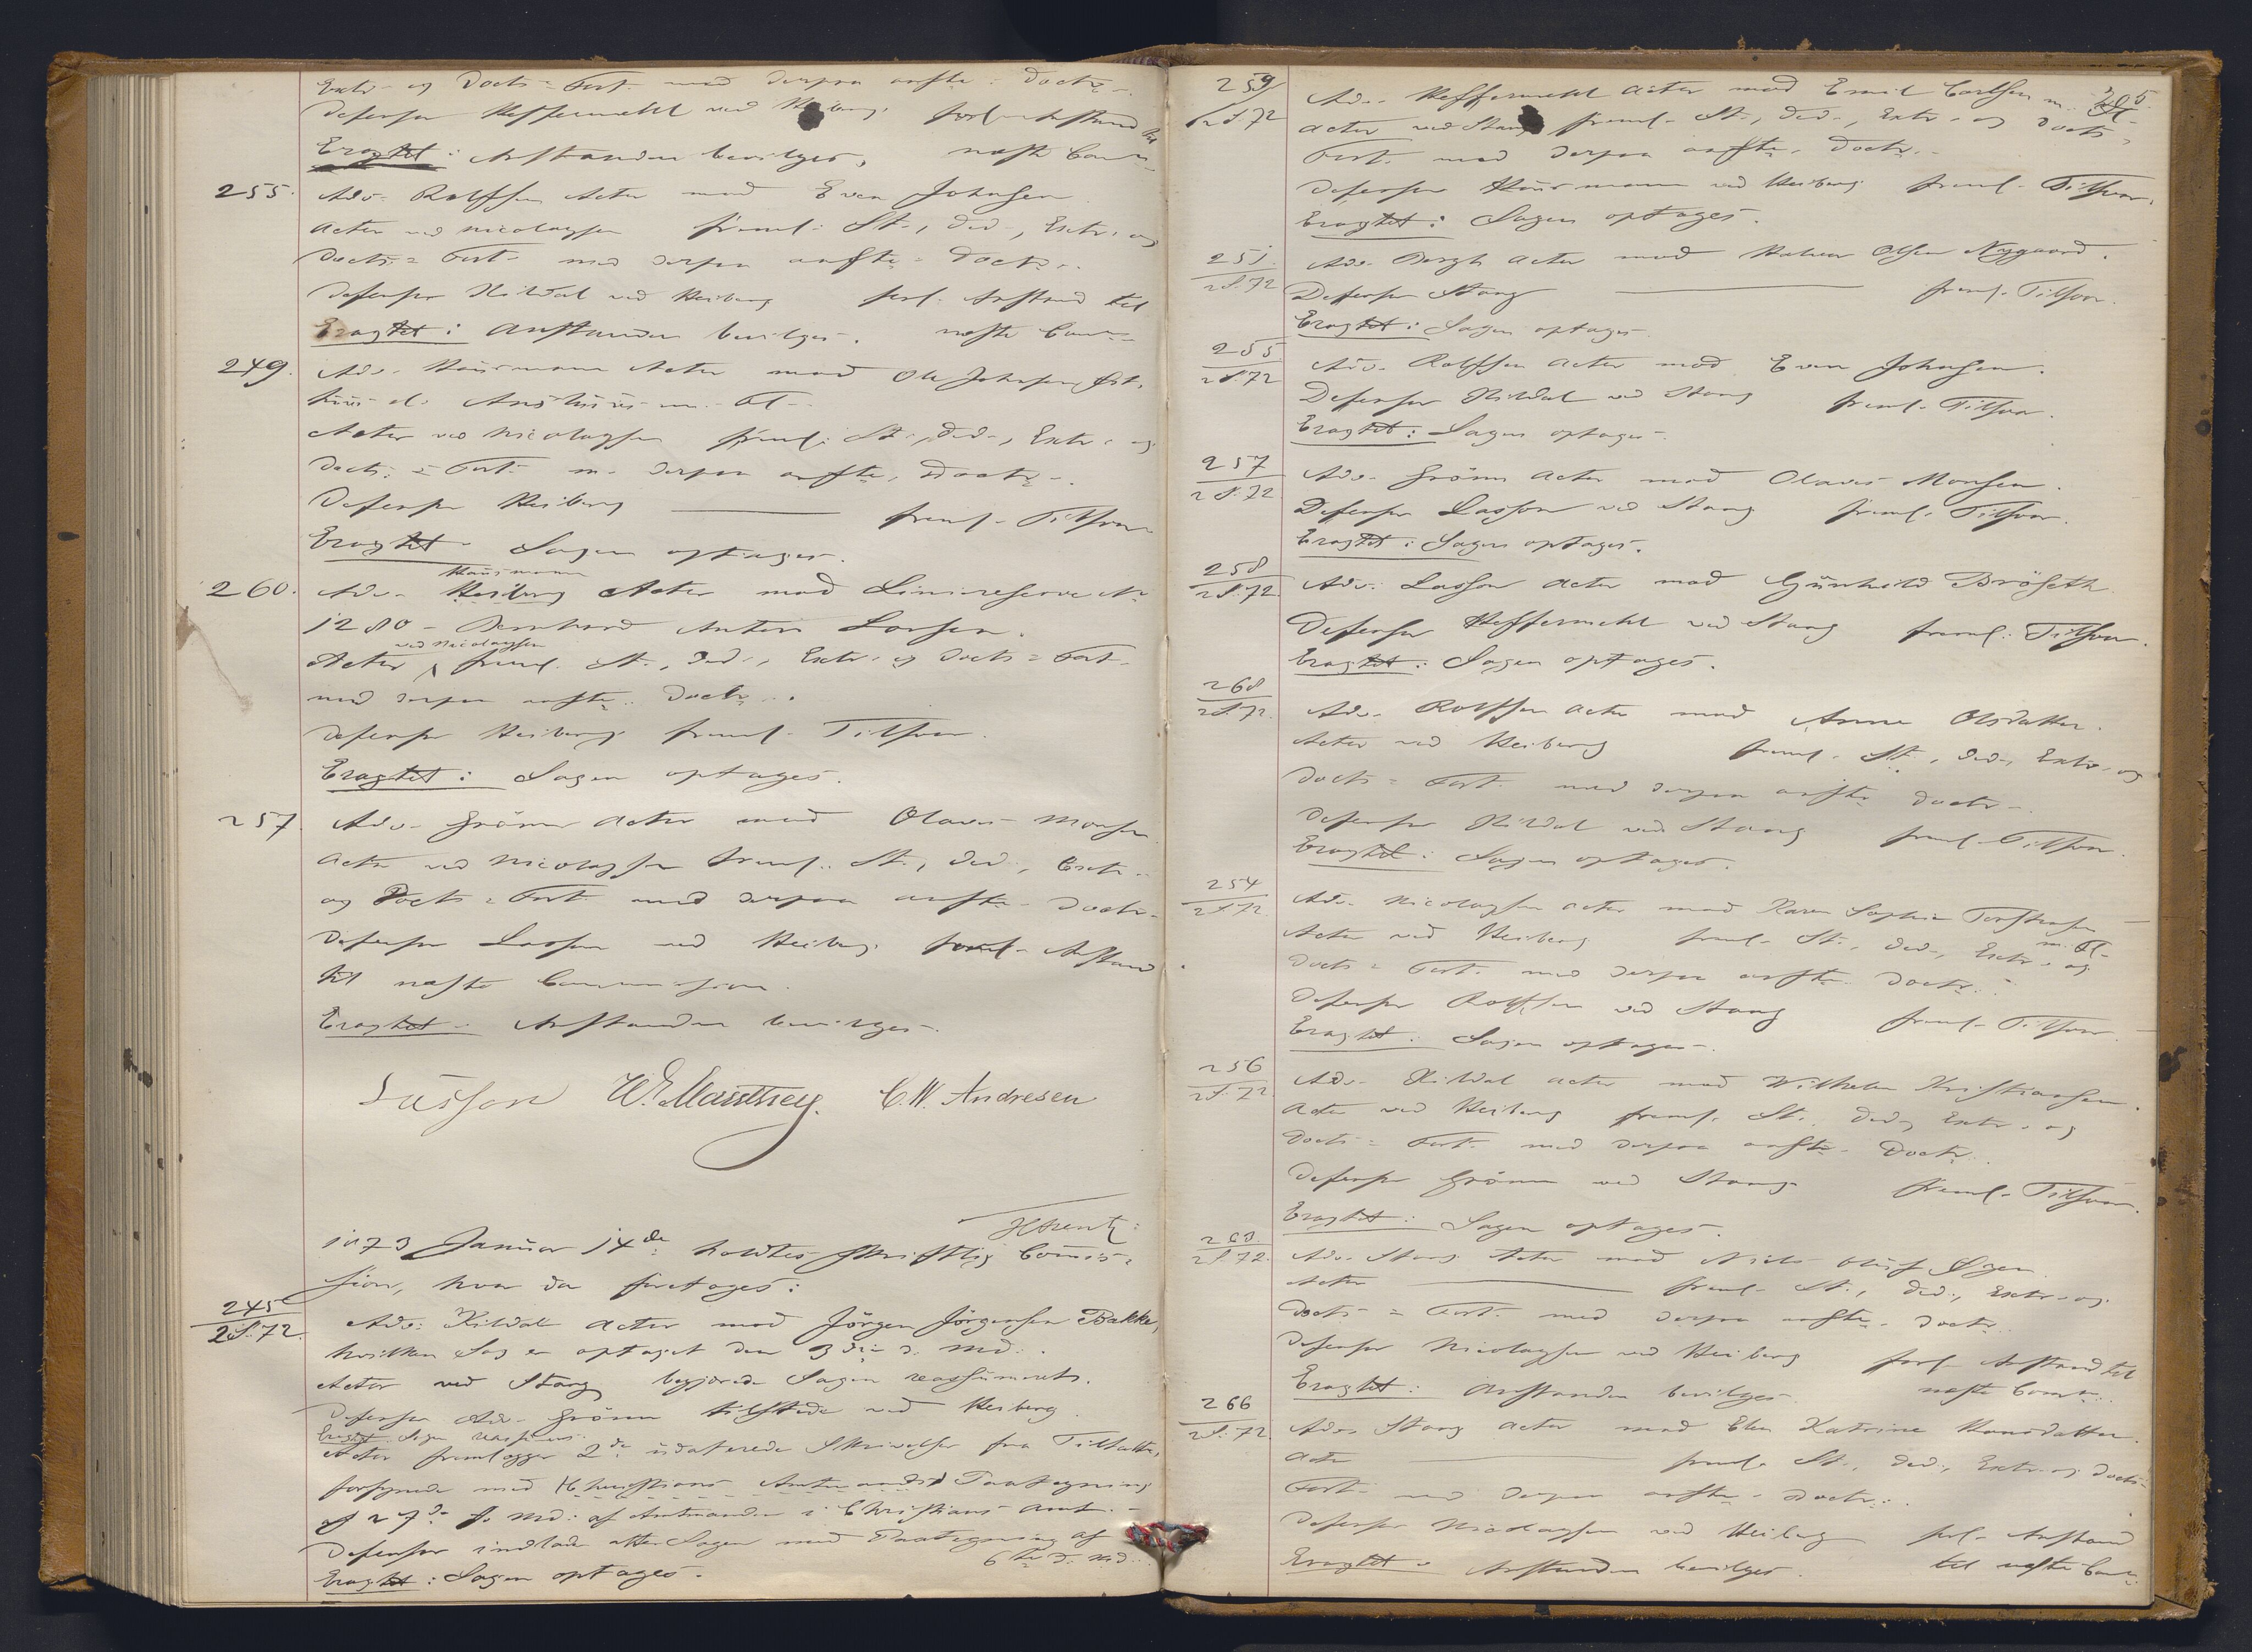 Extr- og Docts = Fort- med derpaa anfte- Doctr-.
Defensor Heffermehl ved Heiberg forl- Anstand til
Eragtet: Anstanden bevilges, næste Comm-
255. Adv- Rolfsen Actor mod Even Johnsen
Actor ved Nicolaysen freml: St-, Ded-, Extr- og
Docts = Fort- med derpaa anfte- Doctr-.
Defensor Hildal ved Heiberg forl: Anstand til
Eragtet: Anstanden bevilges. næste Comm-
249. Adv- Haürmann Actor mod Ole Johnsen
m- Fl-
Actor ved Nicolaysen freml: St-, Ded-, Extr- og
Docts = Fort- m- derpaa anfte, Doctr-.
Defensor Heiberg — freml- Tilsvar
Eragtet- Sagen optages.
Haürmann
260. Adv- Heiberg Actor mod Liniereserve No
1280 - Bernhard Anton Larsen.
ved Nicolaysen
Actor freml. St-, Ded-, Extr- og Docts = Fort-
med derpaa anfte- Doctr-.
Defensor Heiberg freml- Tilsvar.
Eragtet: Sagen optages.
257. Adv- Grönn Actor mod Olaves Monsen
Actor ved Nicolaysen freml: St-, Ded-, Extr-
og Docts = Fort- med derpaa anfte- Doctr-
Defensor Lasson ved Heiberg forl- Anstand
til næste Commission.
Eragtet- Anstanden bevilges-.
Lasson W. E. Manthey. C. W. Andresen
1873 Januar 14de holdtes skriftlig Commis-
sion, hvor da foretoges:
245
2S.72. Adv: Hildal Actor mod Jörgen Jörgensen Bakke,
hvilken Sag er optaget den 3die d. Md:.
Actor ved Stang begjærede Sagen reassumeret.
Defensor Adv- Grönn tilstede ved Heiberg.
Eragtet. Sagen reassumeres.
Actor fremlægger 2de udaterede Skrivelser fra Tiltalte,
forsynede med Paategning
af 27de f. Md: af Amtmanden i Christians Amt.-
Defensor indlader atter Sagen med Paategning af
6te d. Md..
Eragtet: Sagen optages.
205.
259
2S.72 Adv- Heffermehl Actor mod Emil Carlsen m- Fl-
Actor ved Stang freml- St-, Ded-, Extr- og Docts =
Fort- med derpaa anfte- Doctr-.
Defensor Haürmann ved Heiberg freml- Tilsvar.
Eragtet: Sagen optages.
251.
2S.72 Adv- Bergh Actor mod Halvor Olsen Nygaard.
Defensor Stang — freml- Tilsvar.
Eragtet: Sagen optages.
255
2S.72 Adv- Rolfsen Actor mod Even Johnsen.
Defensor Hildal ved Stang freml- Tilsvar.
Eragtet: Sagen optages-.
257
2S.72. Adv- Grönn Actor mod Olaves Monsen.
Defensor Lasson ved Stang freml- Tilsvar.
Eragtet: Sagen optages.
258
2S.72 Adv: Lasson Actor mod Gunhild Bröseth
Defensor Heffermehl ved Stang freml: Tilsvar.
Eragtet: Sagen optages.
268
2S.72. Adv- Rolfsen Actor mod Anne Olsdatter.
Actor ved Heiberg freml- St-, Ded-, Extr- og
Docts = Fort- med derpaa anfte Doctr-.
Defensor Hildal ved Stang freml- Tilsvar.
Eragtet: Sagen optages.
254
2S.72 Adv- Nicolaysen Actor mod Karen Sophie Torstensen
m- Fl-
Actor ved Heiberg freml- St-, Ded-, Extr- og
Docts = Fort- med derpaa anfte- Doctr-.
Defensor Rolfsen ved Stang freml- Tilsvar.
Eragtet: Sagen optages-.
256
2S.72 Adv- Hildal Actor mod Wilhelm Kristiansen.
Actor ved Heiberg freml- St-, Ded-, Extr- og
Docts = Fort- med derpaa anfte- Doctr-.
Defensor Grönn ved Stang freml- Tilsvar.
Eragtet: Sagen optages.
263.
2S.72. Adv- Stang Actor mod Niels Oluf
Actor — freml- St-, Ded-, Extr- og
Docts = Fort- med derpaa anfte- Doctr-.
Defensor Nicolaysen ved Heiberg forl- Anstand til
Eragtet: Anstanden bevilges. næste Comm-.
266
2S.72. Adv- Stang Actor mod Ellen Katrine Hansdatter.
Actor — freml- St-, Ded-, Extr- og Docts-
Fort- med derpaa anfte- Doctr-.
Defensor Nicolaysen ved Heiberg forl- Anstand
Eragtet- Anstanden bevilges. til næste Com-